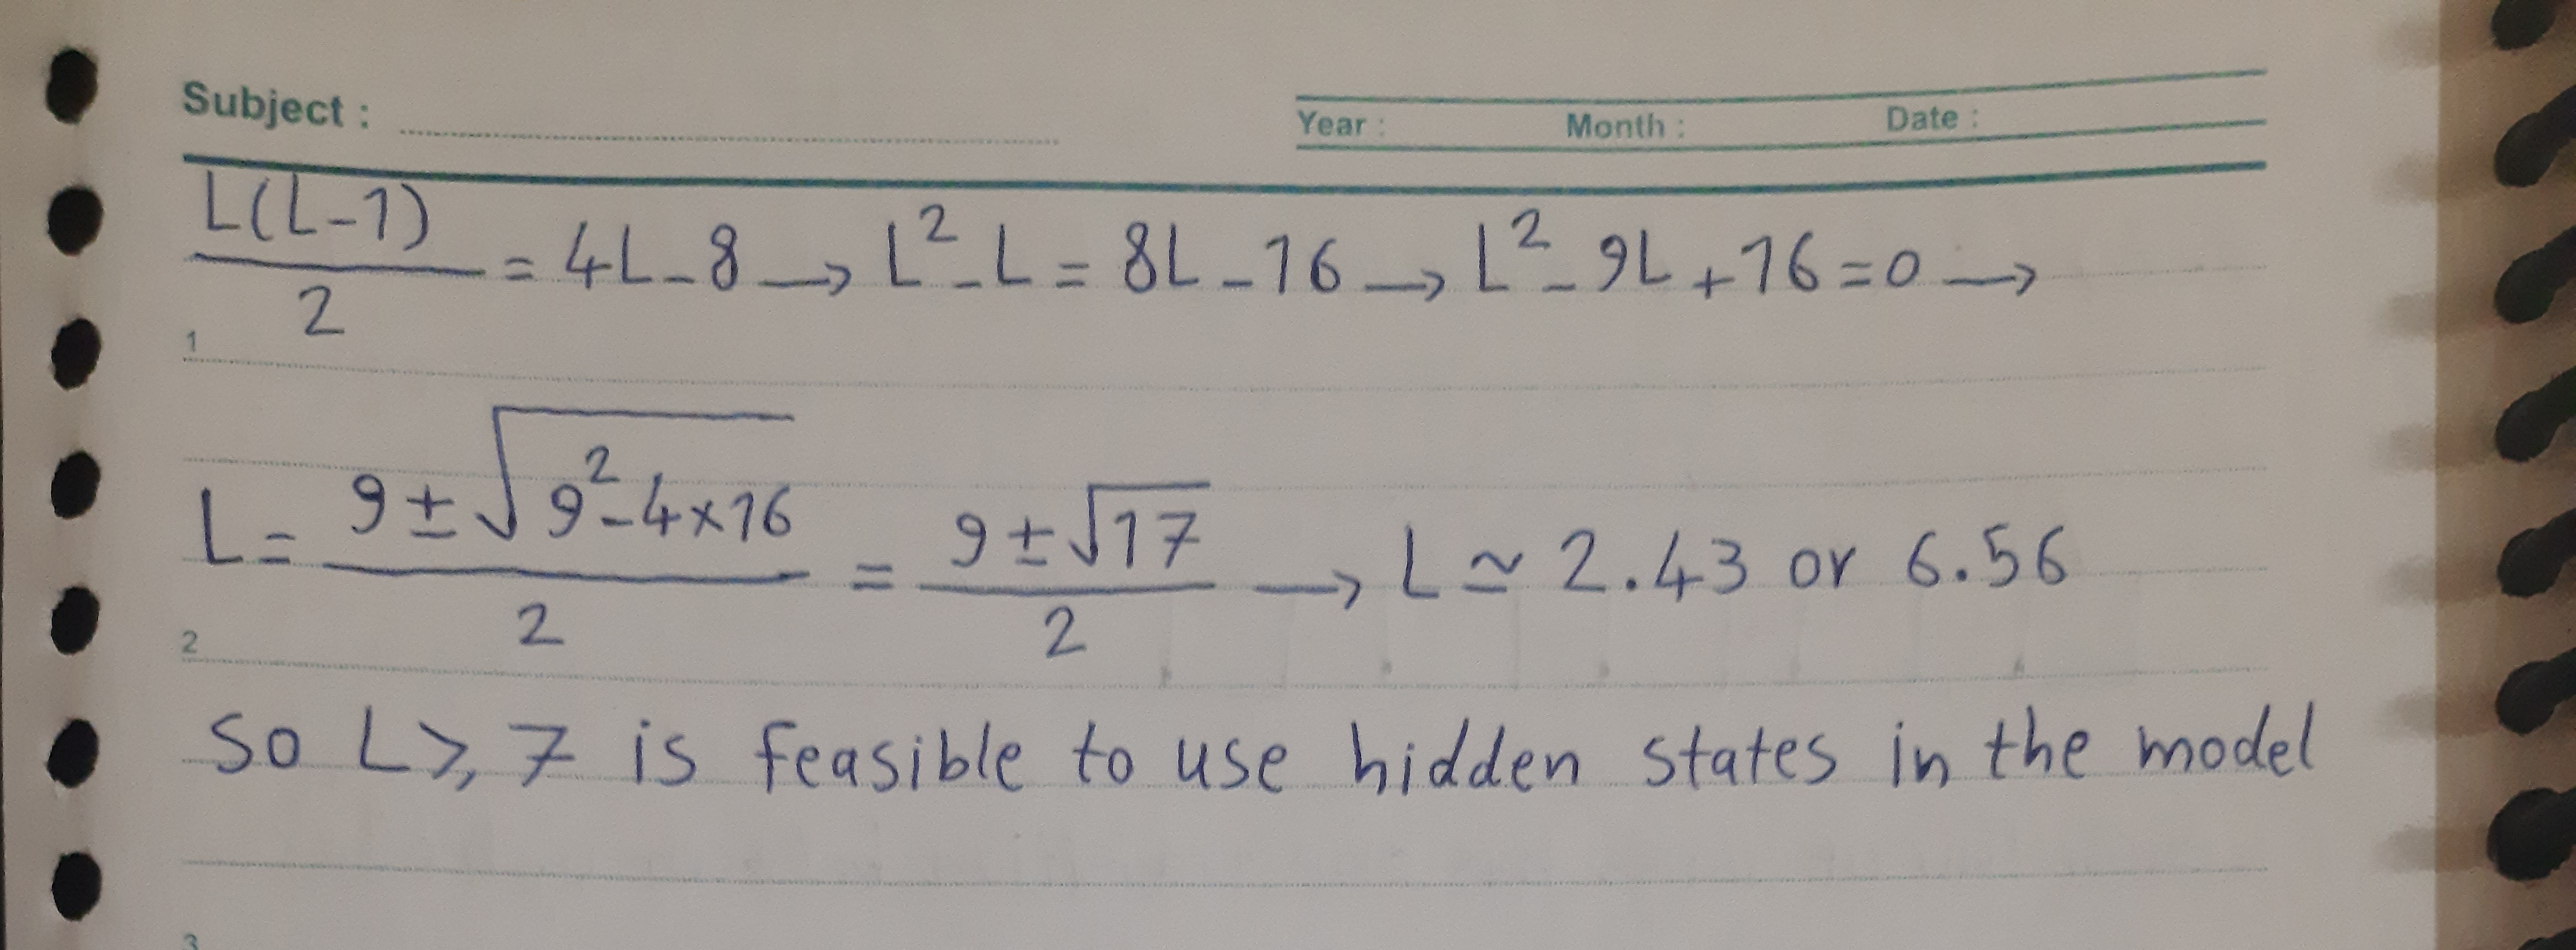 Subject :
Year : Month : Date :
L(L-1)/2 = 4L-8 → L²-L = 8L-16 → L²-9L+16=0 →
1
L = (9±√(9²-4×16))/2 = (9±√17)/2 → L ≃ 2.43 or 6.56
2
so L ⩾ 7 is feasible to use hidden states in the model
3